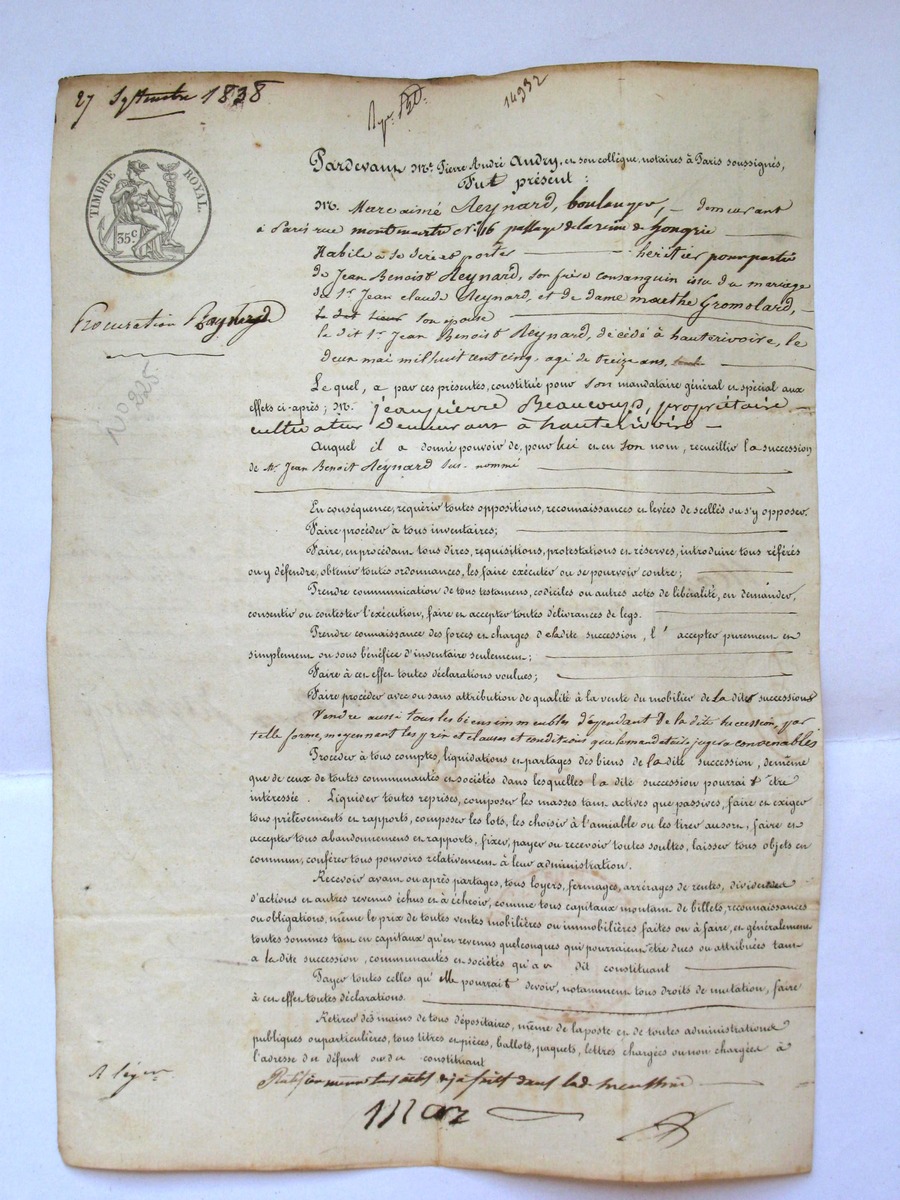 27 Septembre 1838
14932
TIMBRE ROYAL.
35 c
Pardevant Me. Pierre André Andry, et son collègue, notaires à Paris soussignés,
Fut présent :
M. Marc aimé Reynard, boulanger, — demeurant
à Paris rue montmartre No. 16 passage de la reine de hongrie
Habile à se dire et porter héritier pour partie
de Jean Benoist Reynard, son frère consanguin issu du mariage
de Sr. Jean claude Reynard, et de dame marthe Gromolard,
son epouse
le dit Sr. Jean Benoist Reynard, décédé à hauterivoire, le
deux mai mil huit cent cinq, agé de treize ans,
Procuration Reynard
No 225.
Lequel, a par ces présentes, constitué pour son mandataire général et spécial aux
effets ci-après ; M. jean pierre Beaucoup, propriétaire
cultivateur demeurant à hauterivoire —
Auquel il a donné pouvoir de, pour lui et en son nom, recueillir la succession
de M. Jean Benoit Reynard sus-nommé
En conséquence, requérir toutes oppositions, reconnaissances et levées de scellés ou s'y opposer.
Faire procéder à tous inventaires ;
Faire, en procédant, tous dires, requisitions, protestations et réserves, introduire tous référés
ou y défendre, obtenir toutes ordonnances, les faire exécuter ou se pourvoir contre ;
Prendre communication de tous testamens, codiciles ou autres actes de libéralité, en demander,
consentir ou contester l'exécution, faire et accepter toutes délivrances de legs.
Prendre connaissance des forces et charges de la dite succession, l' accepter purement et
simplement ou sous bénéfice d'inventaire seulement ;
Faire à cet effet toutes déclarations voulues ;
Faire procéder avec ou sans attribution de qualité à la vente du mobilier de la dite succession
Vendre aussi tous les biens immeubles dépendant de la dite succession, par
telle forme, moyennant les prix et clauses et conditions que le mandataire jugera convenables
Procéder à tous comptes, liquidations et partages des biens de la dite succession, de même
que de ceux de toutes communautés et sociétés dans lesquelles la dite succession pourrait être
intéressée. Liquider toutes reprises, composer les masses tant actives que passives, faire et exiger
tous prélèvements et rapports, composer les lots, les choisir à l'amiable ou les tirer au sort, faire et
accepter tous abandonnemens et rapports, fixer, payer ou recevoir toutes soultes, laisser tous objets en
commun, conférer tous pouvoirs relativement à leur administration.
Recevoir avant ou après partages, tous loyers, fermages, arrérages de rentes, dividendes
d'actions et autres revenus échus et à échoir, comme tous capitaux montant de billets, reconnaissances
ou obligations, même le prix de toutes ventes mobilières ou immobilières faites ou à faire, et généralement
toutes sommes tant en capitaux qu'en revenus quelconques qui pourraient être dues ou attribuées tant
a la dite succession, communautés et sociétés qu'au dit constituant
Payer toutes celles qu'elle pourrait devoir, notamment tous droits de mutation, faire
à cet effet toutes déclarations.
Retirer des mains de tous dépositaires, même de la poste et de toutes administrations
publiques ou particulières, tous titres et pièces, ballots, paquets, lettres chargées ou non chargées à
l'adresse du défunt ou du constituant